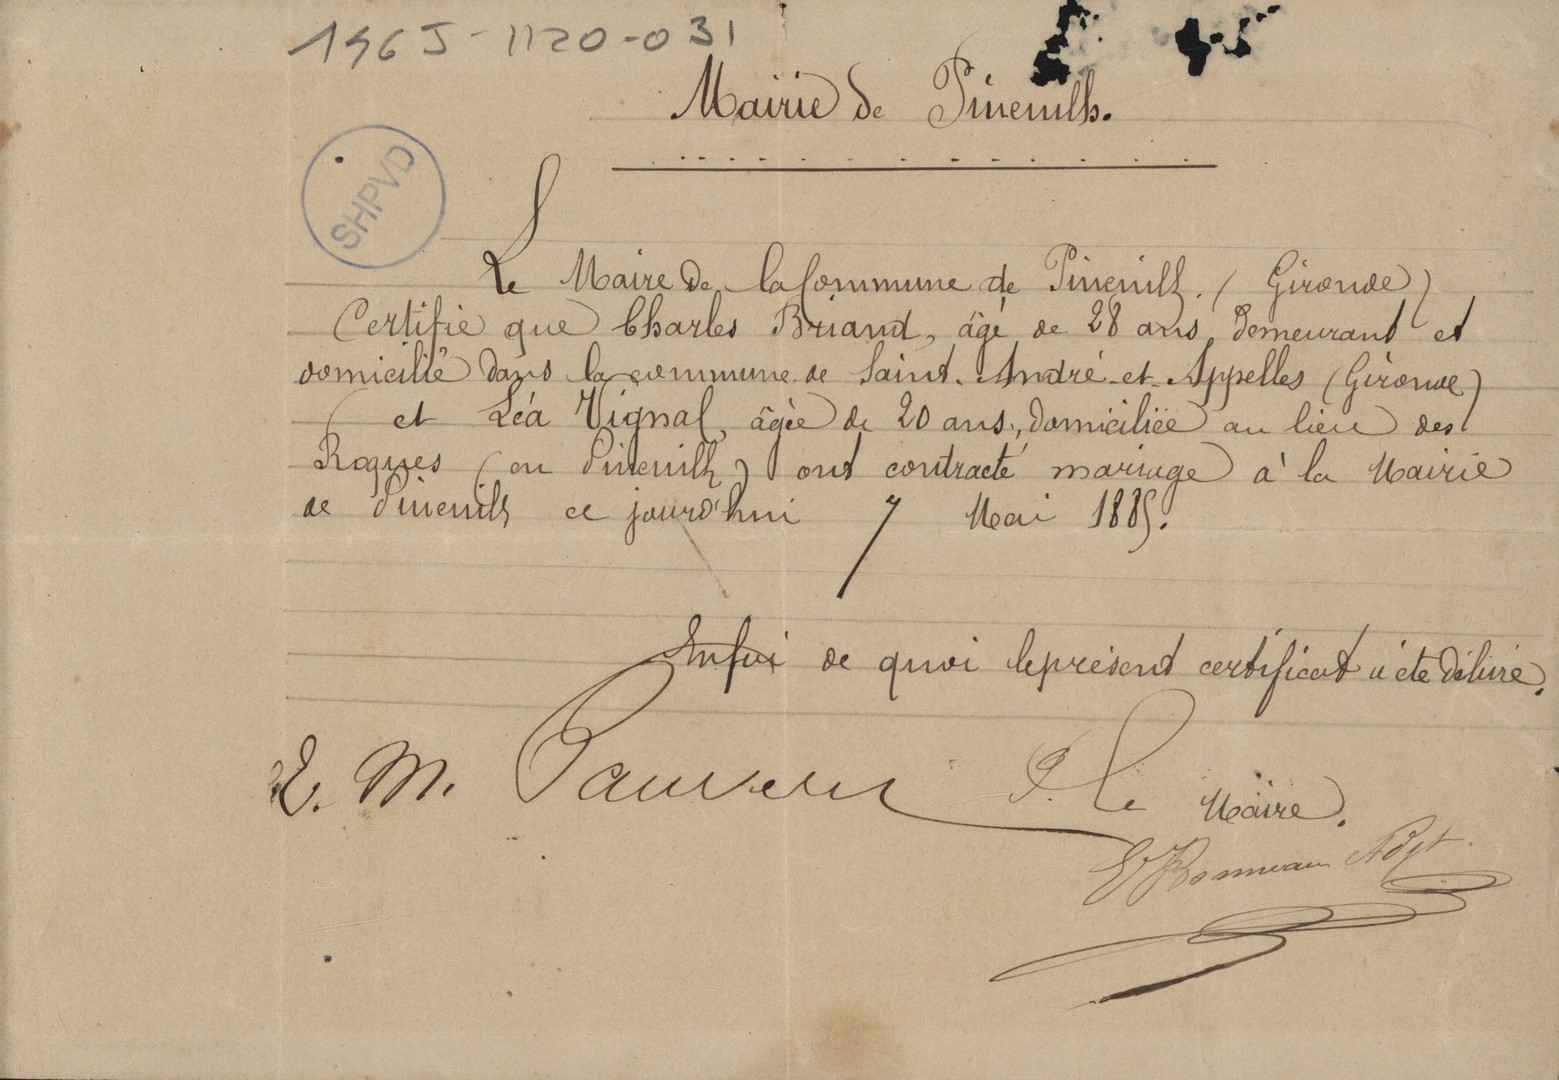 196J-1120-031
Mairie de Pineuilh.
SHPVD
Le Maire de la Commune de Pineuilh. (Gironde)
Certifie que Charles Briand, âgé de 28 ans, demeurant et
domicilié dans la commune de Saint. André-et-Appelles (Gironde)
et Léa Vignal, âgée de 20 ans, domiciliée au lieu des
Roques (en Pineuilh) ont contracté mariage à la Mairie
de Pineuilh ce jourd'hui 7 Mai 1885.
En foi de quoi le présent certificat a été délivré.
E. M. P. Le Maire.
Adjt.